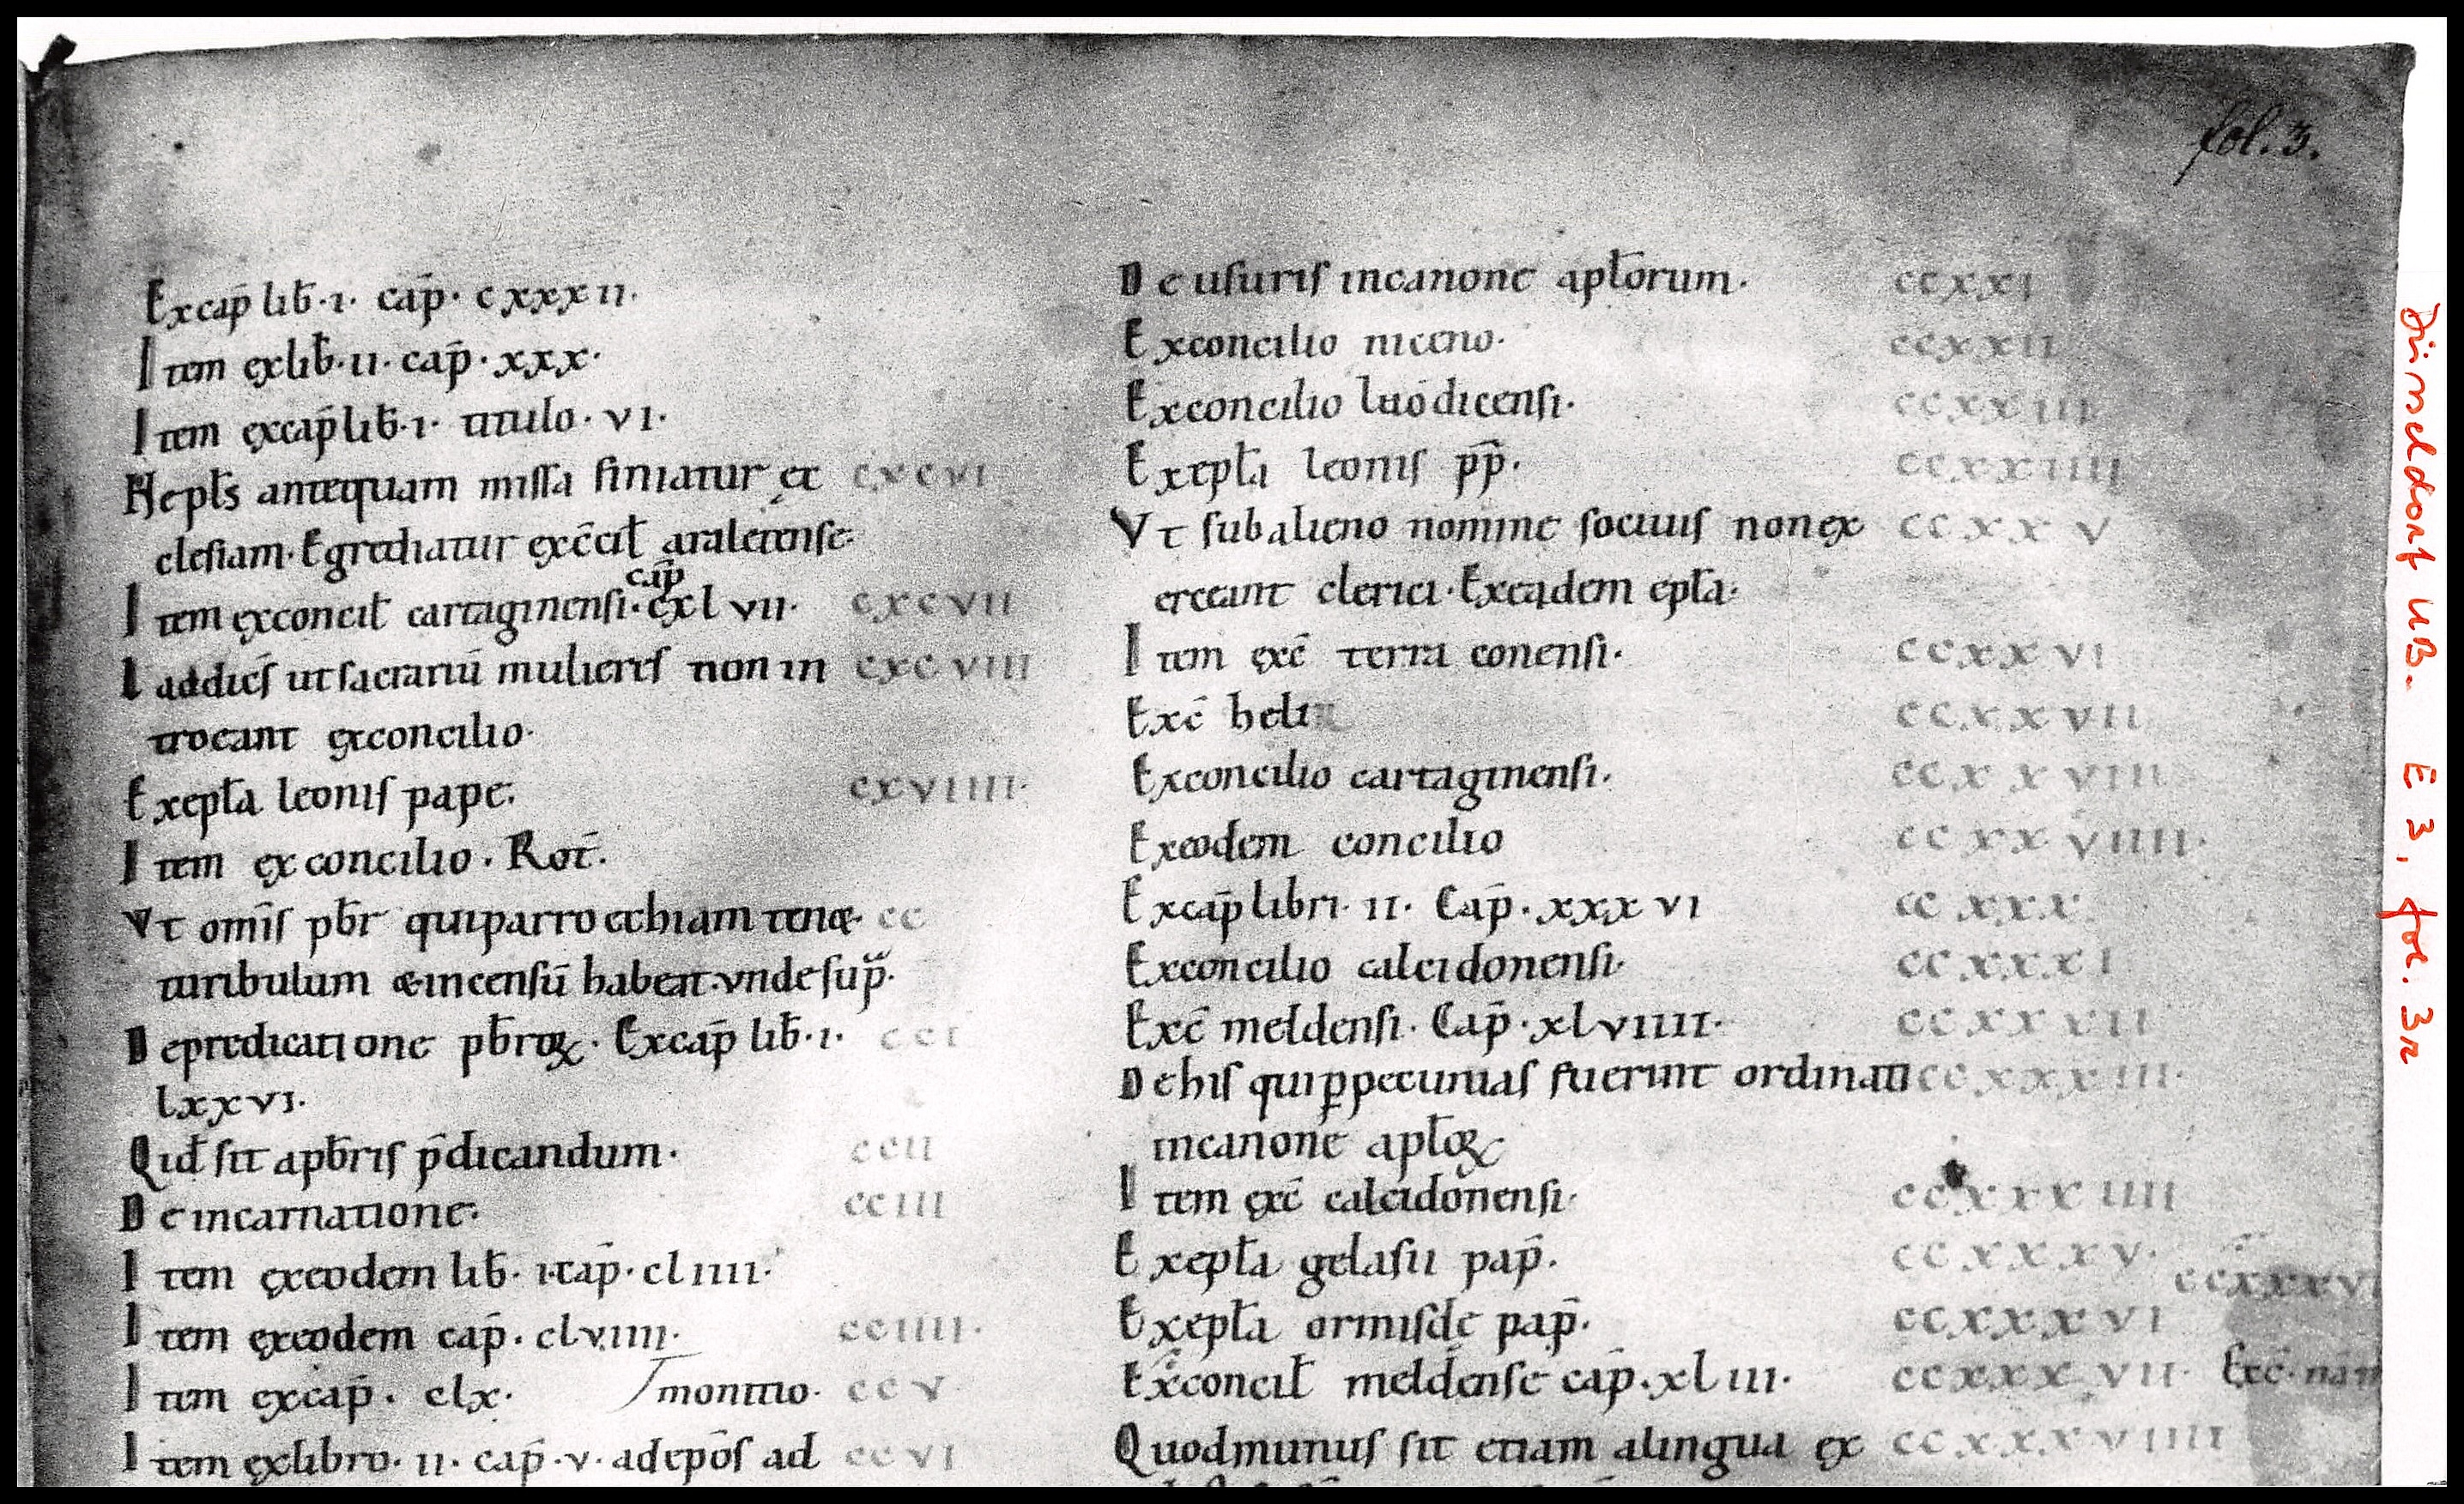 fol. 3.
Excap̄ lib̄·ı· cap̄· cxxxıı·
Item ęxlib̄·ıı· cap̄·xxx·
Item ęxcap̄ lib̄·ı· titulo·vı·
Nepłs antequam missa finiatur ec cxcvı
clesiam· Egrediatur ęxc̄cił araletense·
cap̄
Item ęxconcił cartaginensi· ęxlvıı· cxcvıı
Laddiēs ut sacrariū mulieres non in cxcvııı
troeant ęxconcilio·
Exepła leonis pape· cxvıııı·
Item ęxconcilio· Roī·
Vt omīs pb̄r quiparroechiam tenet· cc
turibulum & incensū habeat· vnde sup̄·
Depredicatione pb̄roꝝ· Excap̄ lib̄·ı· ccı
lxxvı·
Qid̄ sit apb̄ris p̄dicandum· ccıı
De incarnatione· ccııı
Item ęxeodem lib̄· ı·cap̄·clıııı·
Item ęxeodem cap̄· clvıııı· ccıııı·
Item ęxcap̄· clx· monitio· ccv
Item ęxlibro· ıı· cap̄·v· adepōs ad ccvı
De usuris incanone apłorum· ccxxı
Exconcilio niceno· ccxxıı
Exconcilio laodicensi· ccxxııı
Exepła leonis pp̄· ccxxıııı
Vt sub alieno nomine sociuis non ęx ccxxv
erceant clerici· Exeadem epła·
Item ęxc̄ terra conensi· ccxxvı
Exc̄ heli ccxxvıı
Exconcilio cartaginensi· ccxxvııı
Exeodem concilio ccxxvıııı·
Excap̄ libri· ıı· Cap̄·xxxvı ccxxx
Exconcilio calcidonensi· ccxxxı
Exc̄ meldensi· Cap̄·xlvıııı· ccxxxıı
De his qui ꝑpecunias fuerint ordinati ccxxxııı·
incanone apłoꝝ
Item ęxc̄ calcidonensi· ccxxxıııı
Exepła gelasii pap̄· ccxxxv·
ccxxxvı
Exepła ormisde pap̄· ccxxxvı
Exconcił meldense cap̄·xlııı· ccxxxvıı· Exc̄·
Quodmunus sit etiam alingua ęx ccxxxvıııı
Düsseldorf UB. E 3, fol. 3r